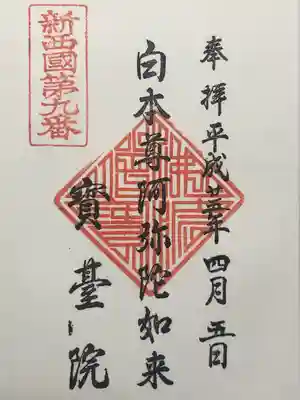 奉拝 平成廿五年四月五日
白本尊阿弥陀如来
寶臺院
新西國第九番